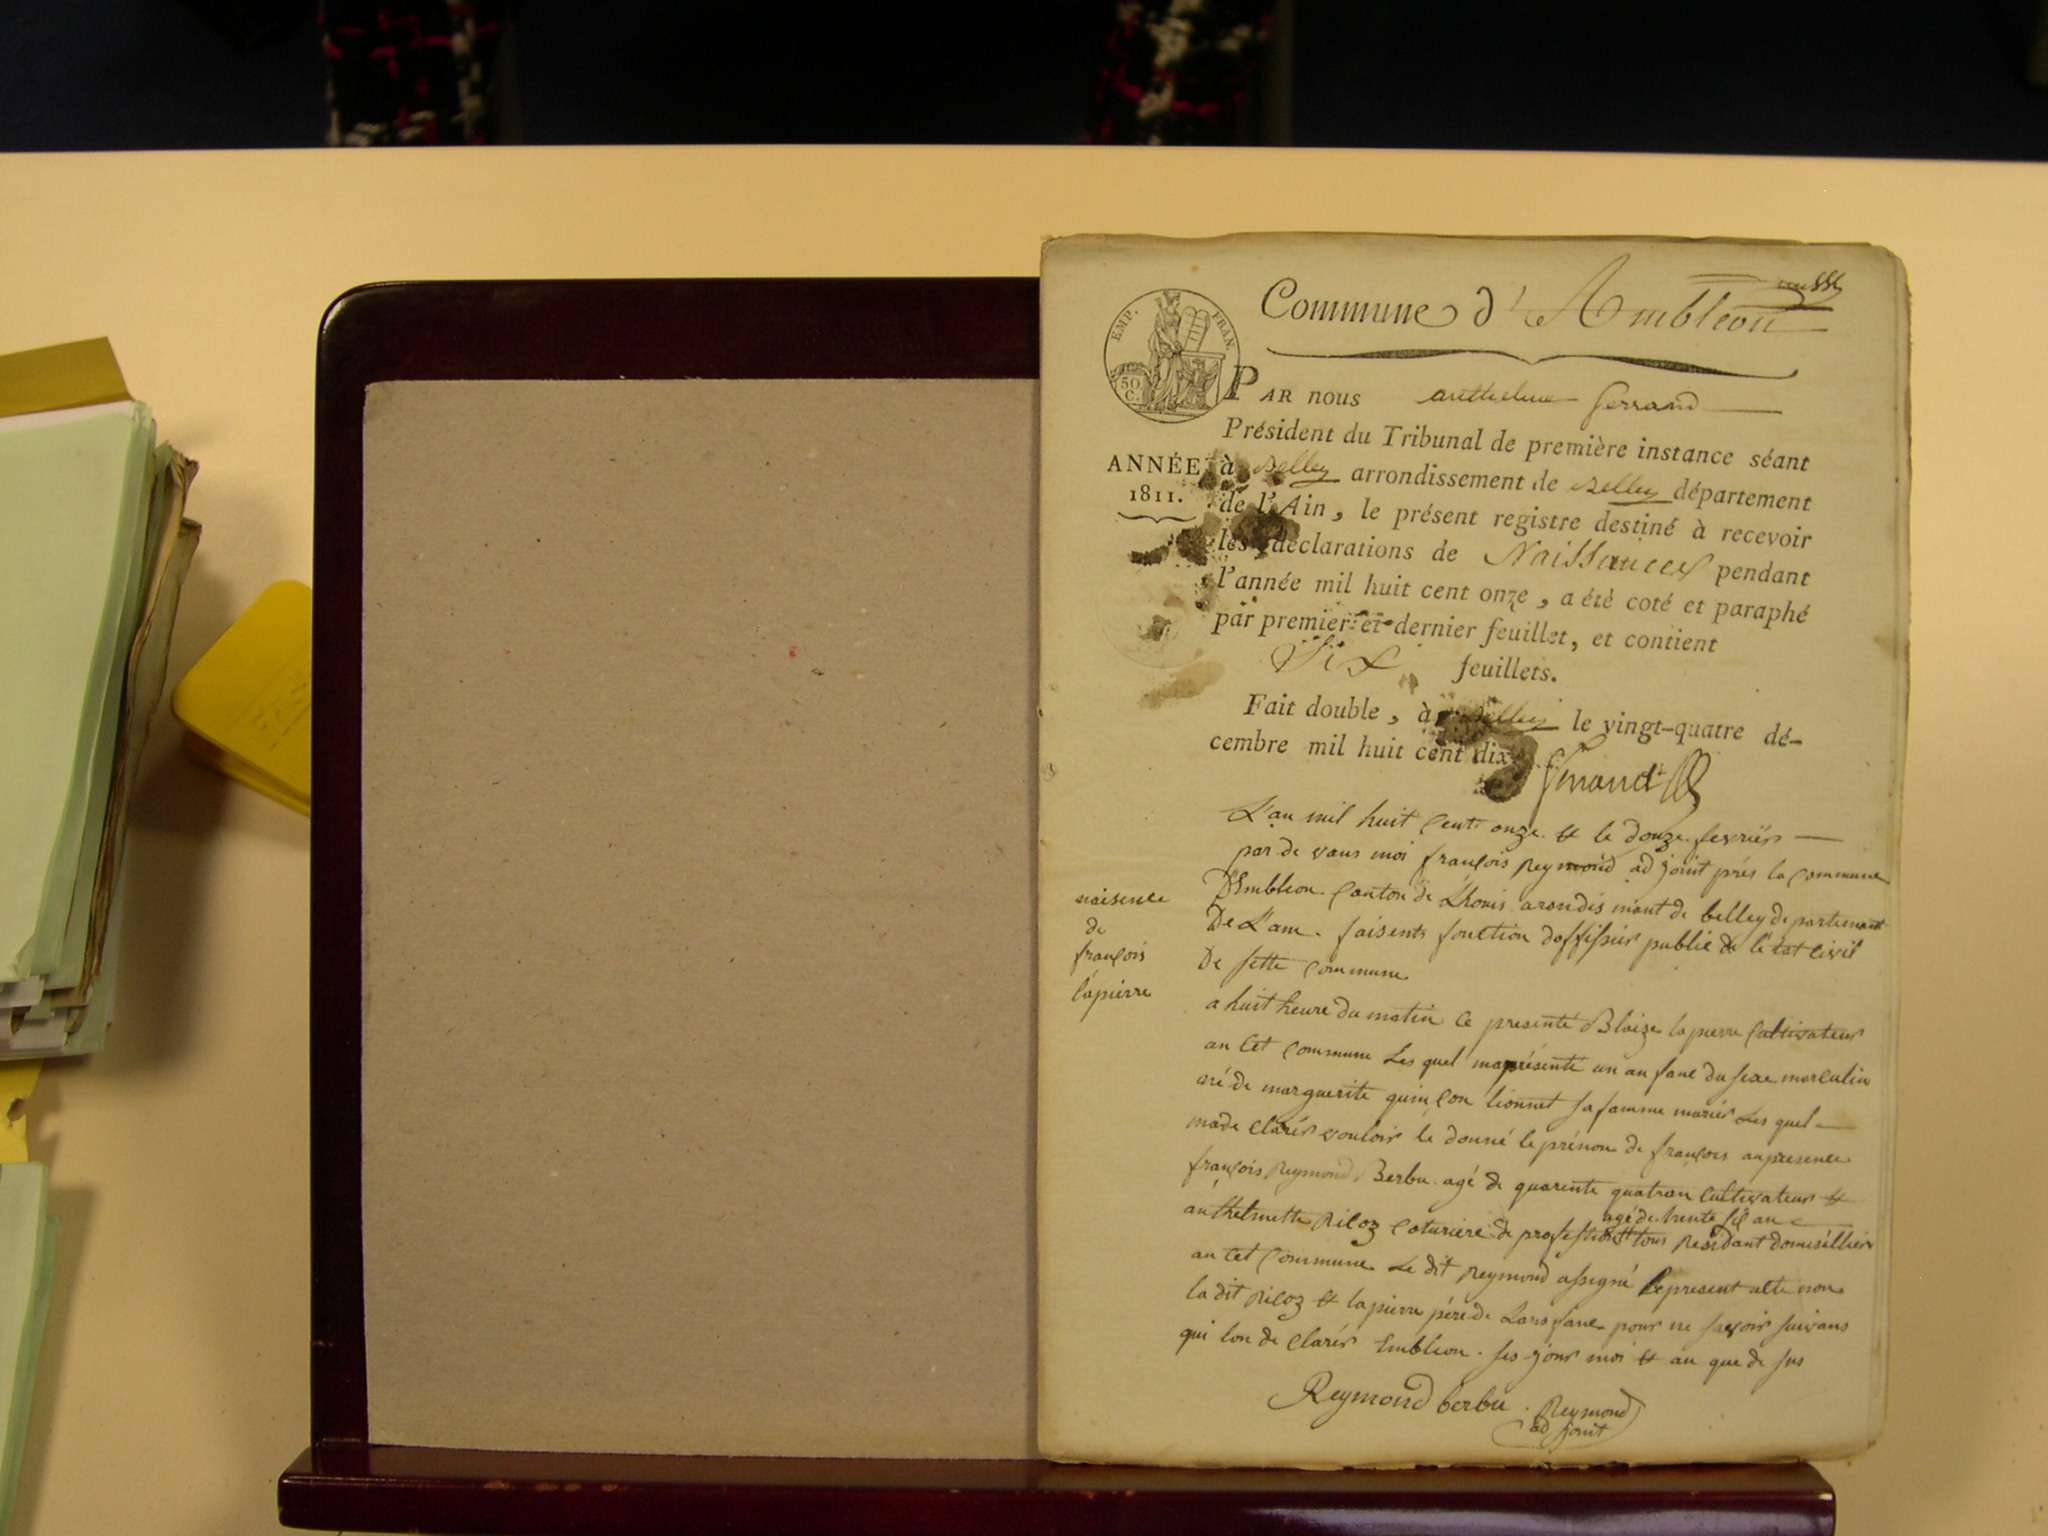 Commune d'Ambléon
EMP. FRAN.
50
C.
PAR nous anthelme ferrand
Président du Tribunal de première instance séant
ANNÉE
1811.
à Belley arrondissement de Belley département
de l'Ain, le présent registre destiné à recevoir
les déclarations de Naissances pendant
l'année mil huit cent onze, a été coté et paraphé
par premier et dernier feuillet, et contient
Six feuillets.
Fait double, à Belley le vingt-quatre dé-
cembre mil huit cent dix
L'an mil huit Cent onze & le douze fevrier
par de vans moi françois Reymond adjoint prés la Commune
D'Embleon Canton de Lhouis arondismant de belley departement
De L'ain faisents fonction doffisier public de l'état civil
De sette Commune
naisence
de
françois
lapierre
a huit heure du matin Ce presenté Blaize lapierre Cultivateur
an Cet Commune Les quel ma présenté un anfane du sexe masculin
né de marguerite quinçon lionnet sa famme mariés Les quel
ma de Clarér vouloir le donné le prénon de françois anpresence
françois Reymond Berbu agé de quarente quatran Cultivateur &
agé de trente sis an
anthelmette Riloz Coturiere de profession & tous Residant domisillier
an Cet Commune Le dit Reymond a signé le present acte non
la dit Riloz & lapierre pére de Lansfane pour ne savoir suivans
qui lon de Clarér Embleon ses jour moi & an que de sus
Reymond berbu Reymond
adjoint